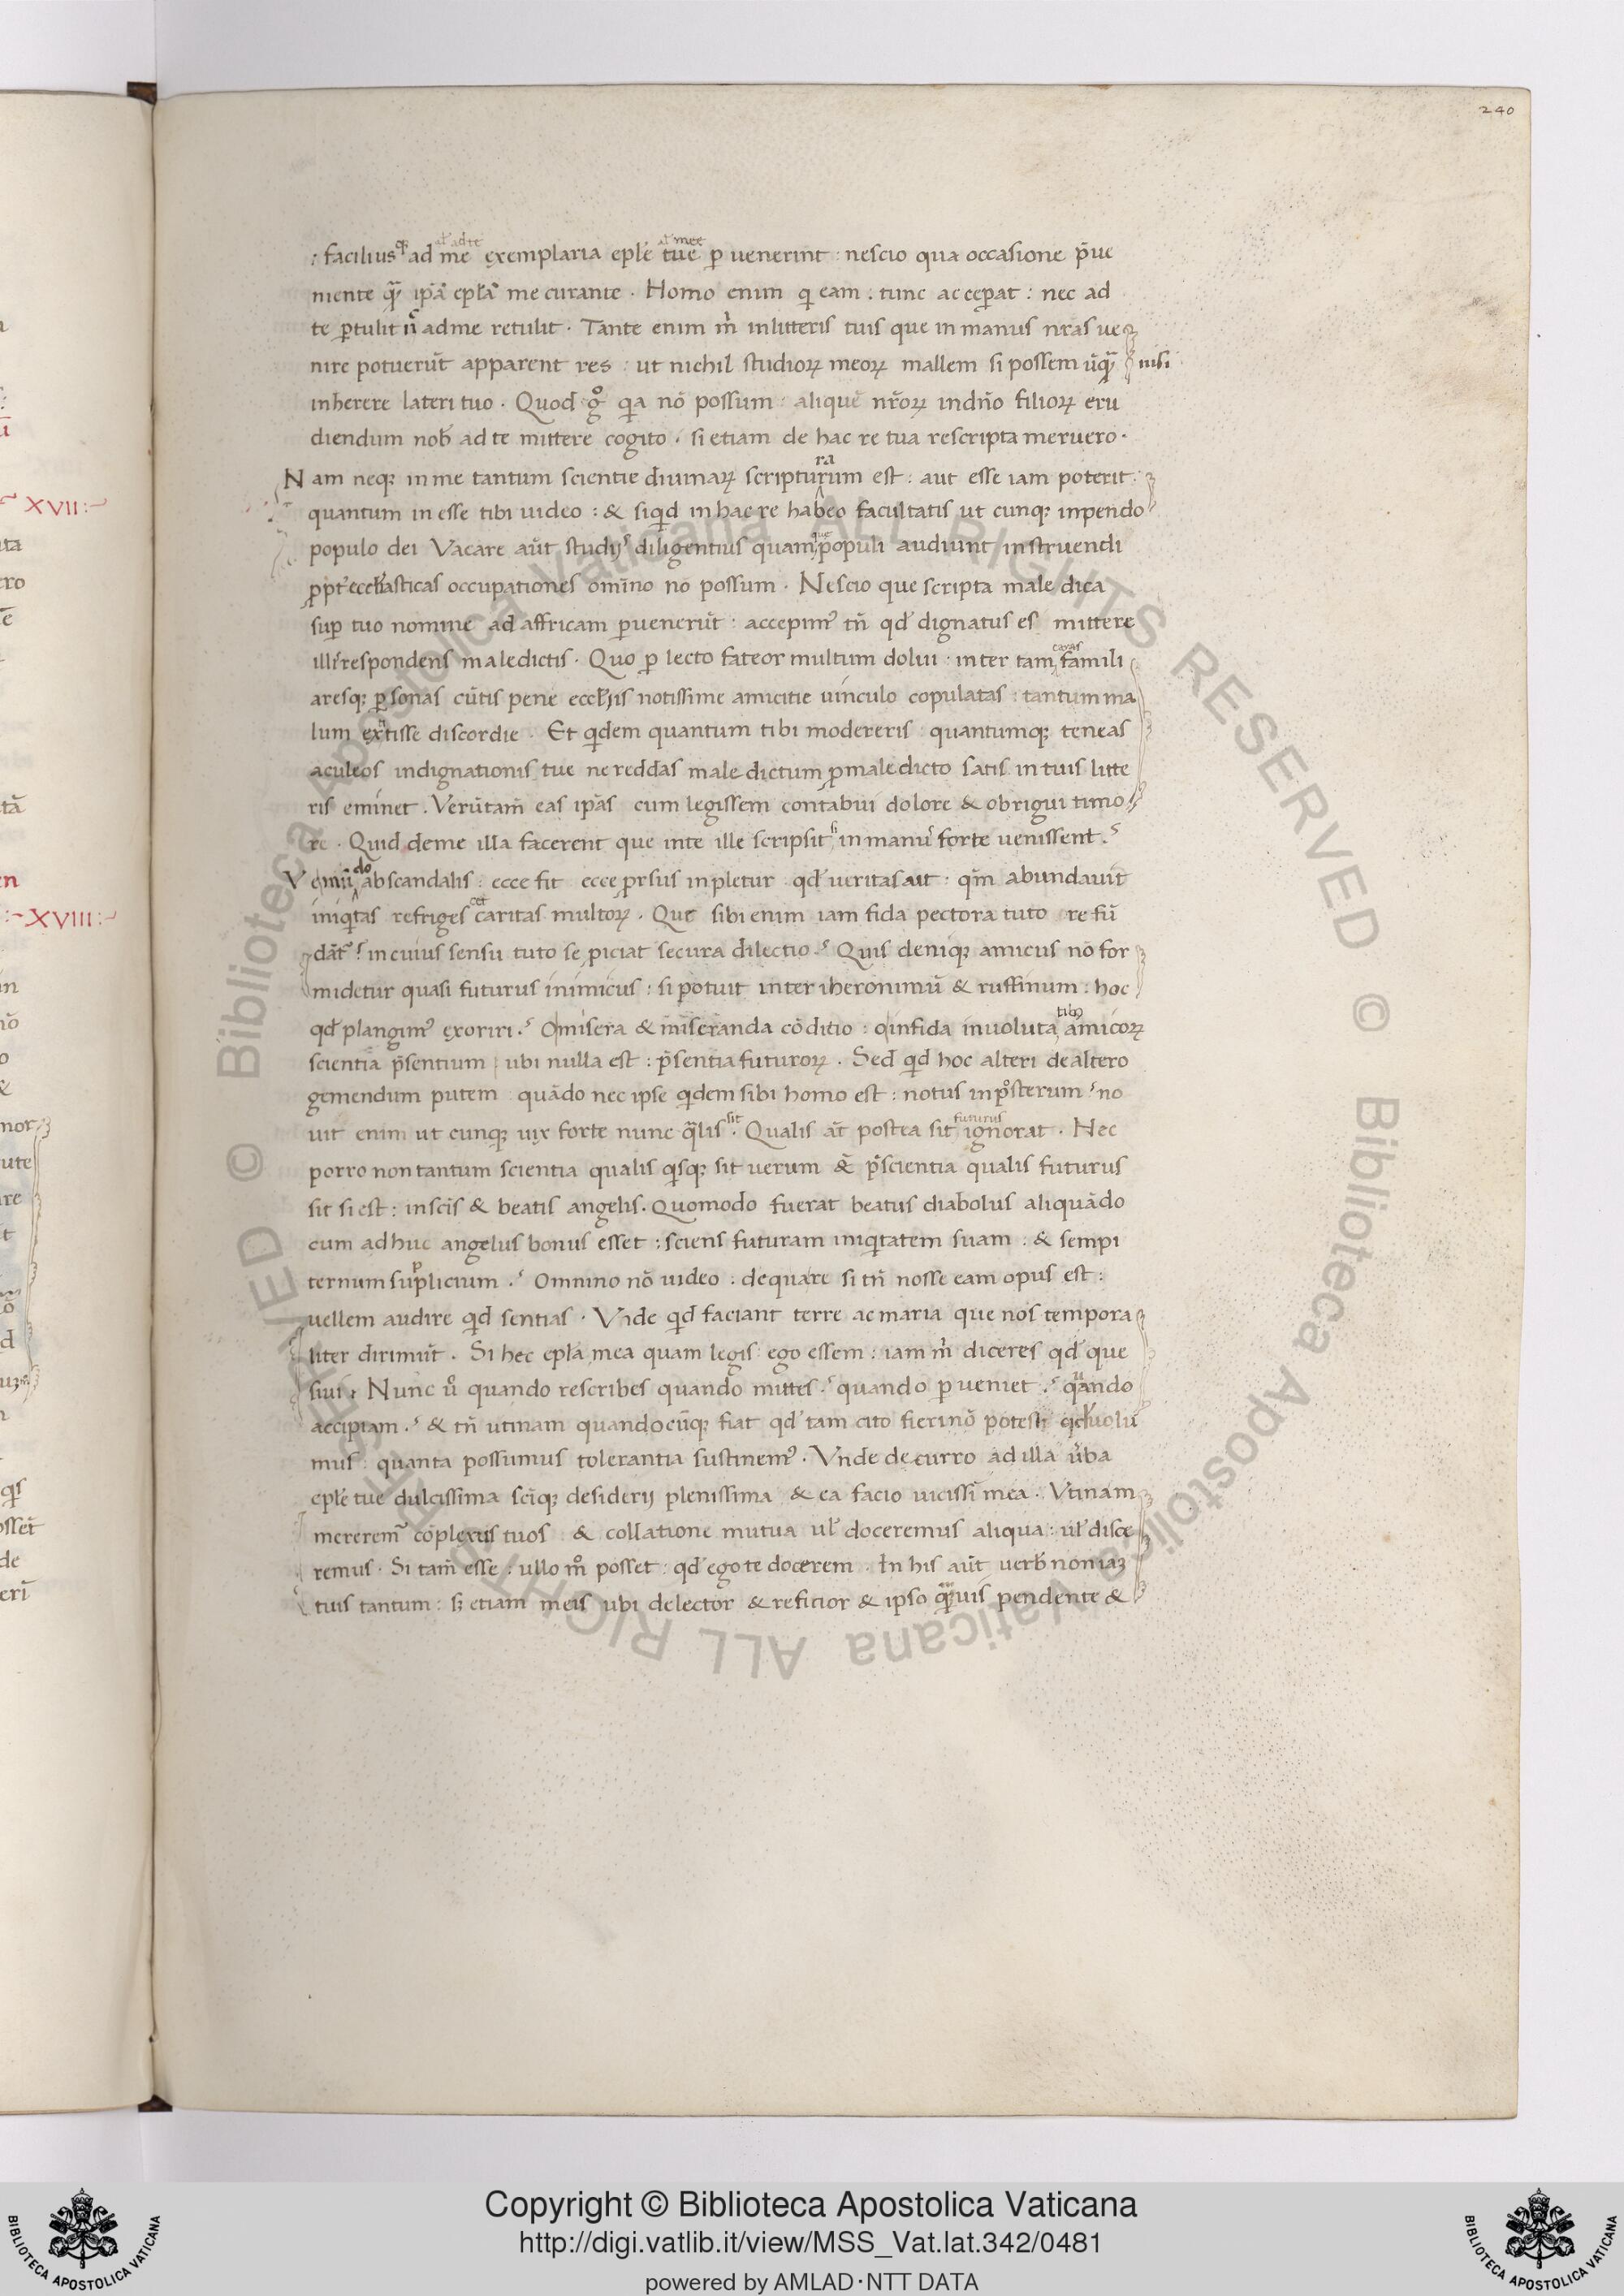 240
: facilius qꝫ ad me exemplaria eple tue ꝑ uenerint : nescio qua occasione p̄ue
niente q̄ ip̄a ep̄la me curante . Homo enim qi eam . tunc acceꝑat : nec ad
te ꝑtulit n̄ adme retulit . Tante enim m̄ inlitteris tuis que in manus nr̄as ue
nire potuerūt apparent res : ut nichil studioꝝ meoꝝ mallem si possem ūq̄ nisi
inherere lateri tuo . Quod gͦ qia nō possum : aliquē nr̄oꝝ indn̄o filioꝝ eru
diendum nob̄ ad te mittere cogito . si etiam de hac re tua rescripta meruero .
Nam neqꝫ in me tantum scientie diuinaꝝ scripturarum est : aut esse iam poterit :
quantum in esse tibi uideo : & siqid in hac re habeo facultatis ut cunqꝫ inpendo
populo dei Vacare aūt studijs diligentius quam que populi audiunt instruendi
ꝓpt̄ eccl̄iasticas occupationes omīno nō possum . Nescio que scripta male dica
suꝑ tuo nomine ad affricam ꝑuenerūt : accepimꝰ tn̄ qd̄ dignatus es mittere
illis respondens maledictis . Quo ꝑ lecto fateor multum dolui : inter tam caras famili
aresqꝫ ꝑsonas cūtis pene eccl̄ijs notissime amicitie uinculo copulatas : tantum ma
lum extitisse discordie . Et qidem quantum tibi modereris : quantumqꝫ teneas
aculeos indignationis tue ne reddas male dictum ꝓ maledicto satis in tuis litte
ris eminet . Verūtam̄ eas ip̄as cum legissem contabui dolore & obrigui timo
re . Quid deme illa facerent que inte ille scripsit si in manꝰ forte uenissent .
Ve mūdo ab scandalis : ecce fit ecce ꝓrsus inpletur . qd̄ ueritas ait . qm̄ abundauit
iniqitas refrigescet caritas multoꝝ . Que sibi enim iam fida pectora tuto refū
dāt̄ . in cuius sensu tuto se piciat secura dilectio . Quis deniqꝫ amicus nō for
midetur quasi futurus inimicus : si potuit inter iheronimū & ruffinum : hoc
qd̄ plangimꝰ exoriri . O misera & miseranda cōditio : o infida in uoluntatibꝫ amicoꝝ
scientia p̄sentium ubi nulla est : p̄sentia futuroꝝ . Sed qid hoc alteri de altero
gemendum putem quādo nec ipse qidem sibi homo est : notus in posterum . no
uit enim ut cunqꝫ uix forte nunc qalis sit . Qualis at̄ postea sit futurus ignorat . Nec
porro non tantum scientia qualis qisqꝫ sit uerum & p̄scientia qualis futurus
sit si est : in sc̄is & beatis angelis . Quomodo fuerat beatus diabolus aliquādo
cum adhuc angelus bonus esset : sciens futuram iniqitatem suam : & sempi
ternum supplicium . Omnino nō uideo . dequare si tn̄ nosse eam opus est :
uellem audire qid sentias . Vide qid faciant terre ac maria que nos tempora
liter dirimūt . Si hec ep̄la mea quam legis ego essem : iam m̄ diceres qd̄ que
siui . Nunc uͦ quando rescribes quando mittes . quando ꝑ ueniet . quando
accipiam . & tn̄ utinam quandocūqꝫ fiat qd̄ tam cito fieri nō potest qd̄ uolu
mus : quanta possumus tolerantia sustinemꝰ . Vnde decurro ad illa ūba
ep̄le tue dulcissima sc̄iqꝫ desiderij plenissima & ea facio uicissī mea . Vtinam
merēremꝰ cōplexus tuos : & collatione mutua ul̄ doceremus aliqua : ul̄ disce
remus . Si tam̄ esse . ullo mͦ posset : qd̄ ego te docerem . In his aūt uerb̄ non iaꝫ
tuis tantum : sꝫ etiam meis ubi delector & reficior & ipso quāuis pendente &
XVII :
XVIII :
Copyright © Biblioteca Apostolica Vaticana
http://digi.vatlib.it/view/MSS_Vat.lat.342/0481
powered by AMLAD·NTT DATA
BIBLIOTECA APOSTOLICA VATICANA
BIBLIOTECA APOSTOLICA VATICANA